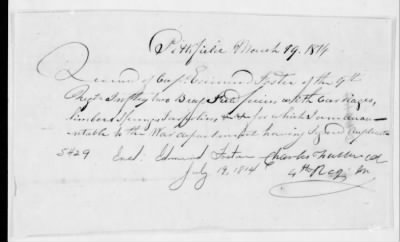 Pittsfield March 19. 1814
Received of Capt Edmund Foster of the 9th
Regt Infty two Brass Field pieces with the Carriages,
limbers Spunges &c for which I am accoun-
-table to the War department having Signed duplicates
5829 Encl. Edmund Foster Charles
July 19, 1814 4th Regt